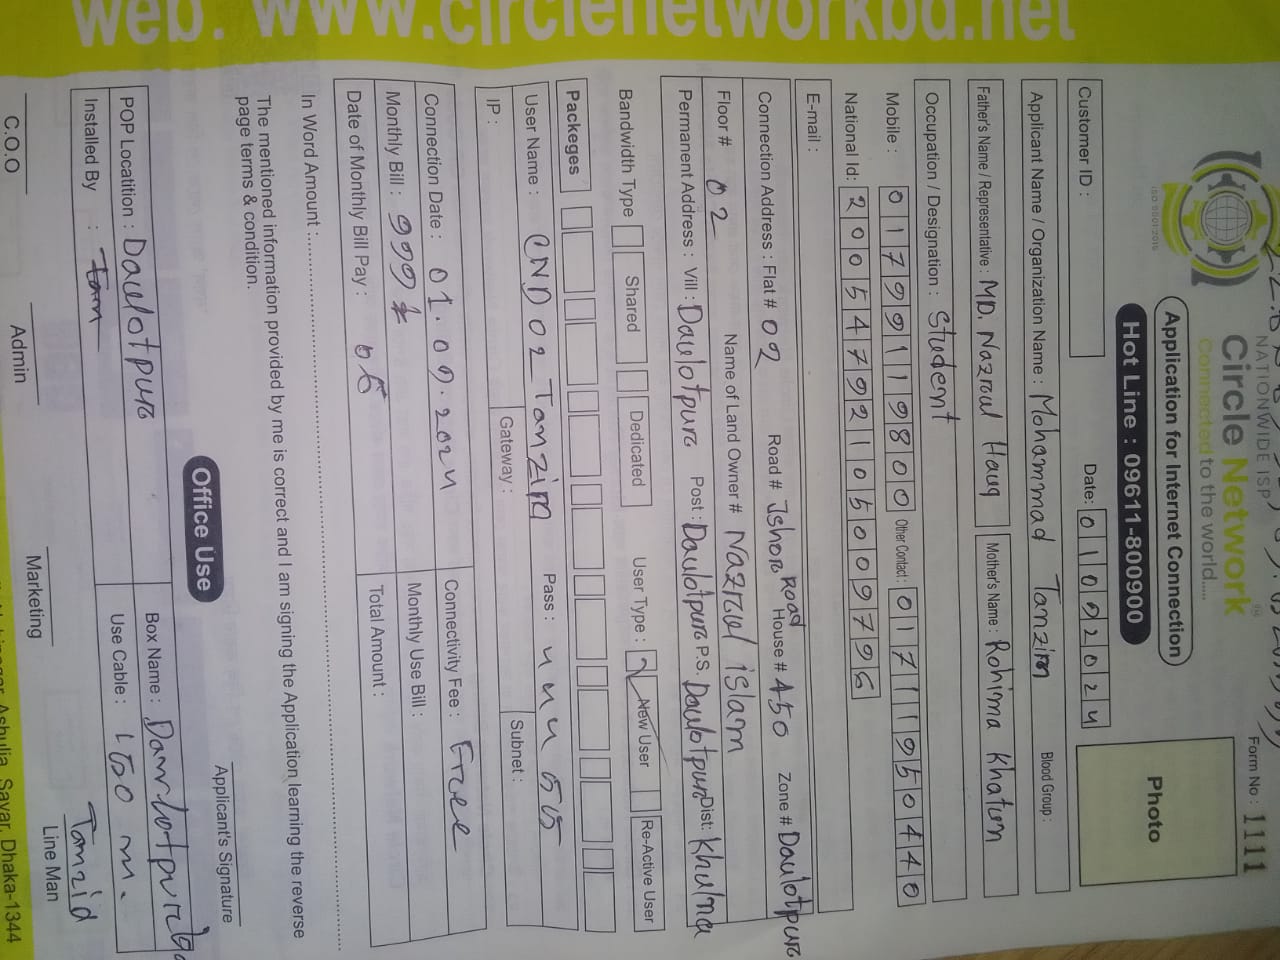 NATIONWIDE ISP
Circle Network
Connected to the world......
ISO 9001:2015
Form No : 1111
Application for Internet Connection
Hot Line : 09611-800900
Photo
Customer ID :
Date: 01092024
Applicant Name / Organization Name : Mohammad Tanzim Blood Group :
Father's Name / Representative : MD. Nazrul Haug Mother's Name : Rohima Khaton
Occupation / Designation : Student
Mobile : 01799119800 Other Contact : 01711950440
National Id: 20054799210500979 6
E-mail :
Connection Address : Flat # 02 Road # Jshore Road House # 450 Zone # Daulotpure
Floor # 02 Name of Land Owner # Nazrul islam
Permanent Address : Vill : Daulotpure Post : Daulotpure P.S. Daulotpure Dist: Khulna
Bandwidth Type Shared Dedicated User Type : New User Re-Active User
Packeges
User Name : CND02Tanzim Pass :
IP : Gateway : Subnet :
Connection Date : 01.09.2024 Connectivity Fee : Free
Monthly Bill : 999 Monthly Use Bill :
Date of Monthly Bill Pay : Total Amount :
In Word Amount :
The mentioned information provided by me is correct and I am signing the Application learning the reverse
page terms & condition.
Applicant's Signature
Office Use
POP Locatition : Daulotpure Box Name :
Installed By : Use Cable : 150 m.
Tanzid
C.O.O Admin Marketing Line Man
Ashulia, Savar, Dhaka-1344
web: www.circlenetworkbd.net